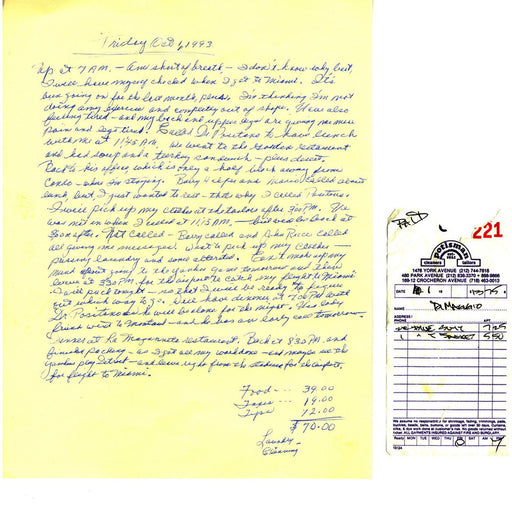 Friday Oct 1, 1993
Up at 7 AM. – Am short of breath, – I don't know why but,
I will have myself checked when I get to Miami. It's
been going on for the last month, plus. I'm thinking I'm not
doing any exercise and completely out of shape. Now also
feeling tired – and my back and upper legs are giving me more
pain and legs tired. Called Dr Positano to have lunch
with me at 11:45 AM. We went to the Golden restaurant
and had soup and a turkey sandwich – plus desert.
Back to his office which is only a half block away from
Condo – where I'm staying. Barry Halper and called about
lunch but, I just wanted to rest – that's why I called Positano.
I will pick up my clothes at the tailors after 3:00 PM. He
was not in when I went at 11:15 AM – but will be back at
3 or after. Nat called – Barry called and Rice called
all giving me messages. Went to pick up my clothes –
pressing laundry and some altered. Can't make up my
mind about going to the Yankee game tomorrow and then
leave at 3:30 PM. for the airport to catch my flight to Miami
I will pack tonight – so that I will be ready to figure
out which way to go. Will have dinner at 7:00 PM with
Dr Positano as he will be alone for the night. His lady
friend went to Montauk – and he has an early exit tomorrow.
Dinner at La Maganette restaurant. Back at 8:30 PM and
finished packing – as I get all my workdone – and maybe see the
Yankees play Detroit – and leave right from the stadium for the airport,
for flight to Miami.
Food --- 39.00
Taxis --- 19.00
Tips 12.00
$70.00
Laundry
Cleaning
Paid
221
portsman
cleaners tailors
1476 YORK AVENUE (212) 744-7618
480 PARK AVENUE (212) 838-3370
169-12 CROCHERON AVENUE (718) 463-0013
DATE
NAME Di Maggio
ADDRESS
PHONE APT.
725
1 550
We assume no responsibility for shrinkage, fading, trimmings, pads,
Ready MON TUE WED THU FRI SAT AM PM